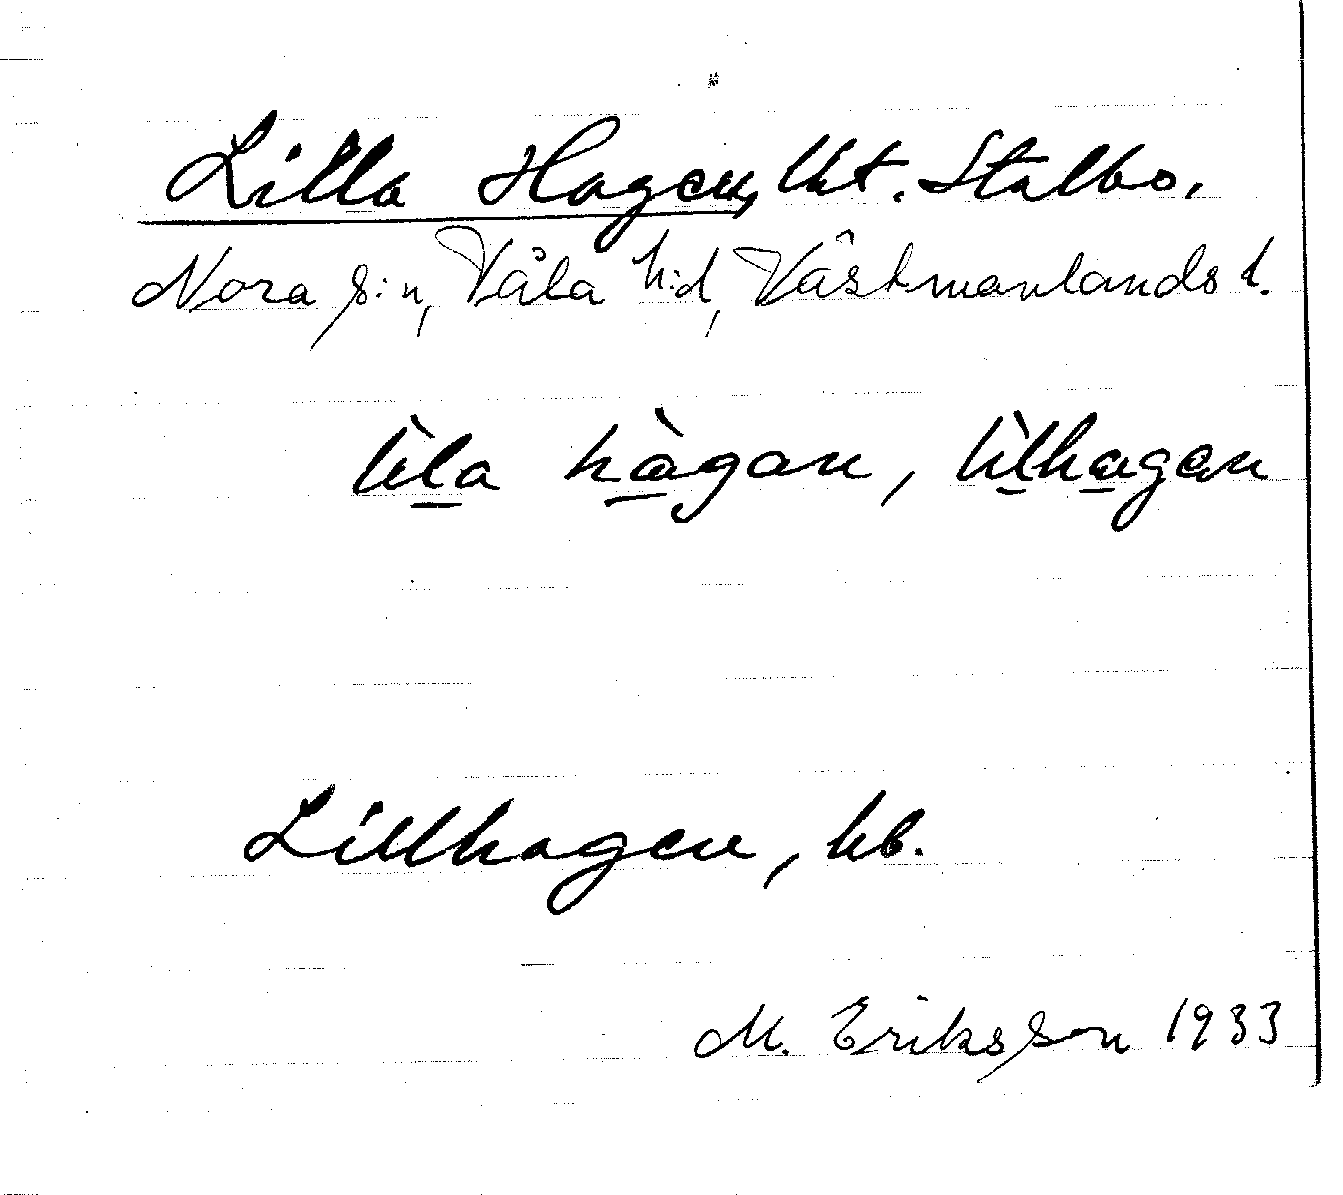 Lilla Hagen, lht. Stalbo.
Nora s:n, Våla h:d, Västmanlands l.
lìla hàgan, lìlhagen
Lillhagen, hb.
M. Eriksson 1933